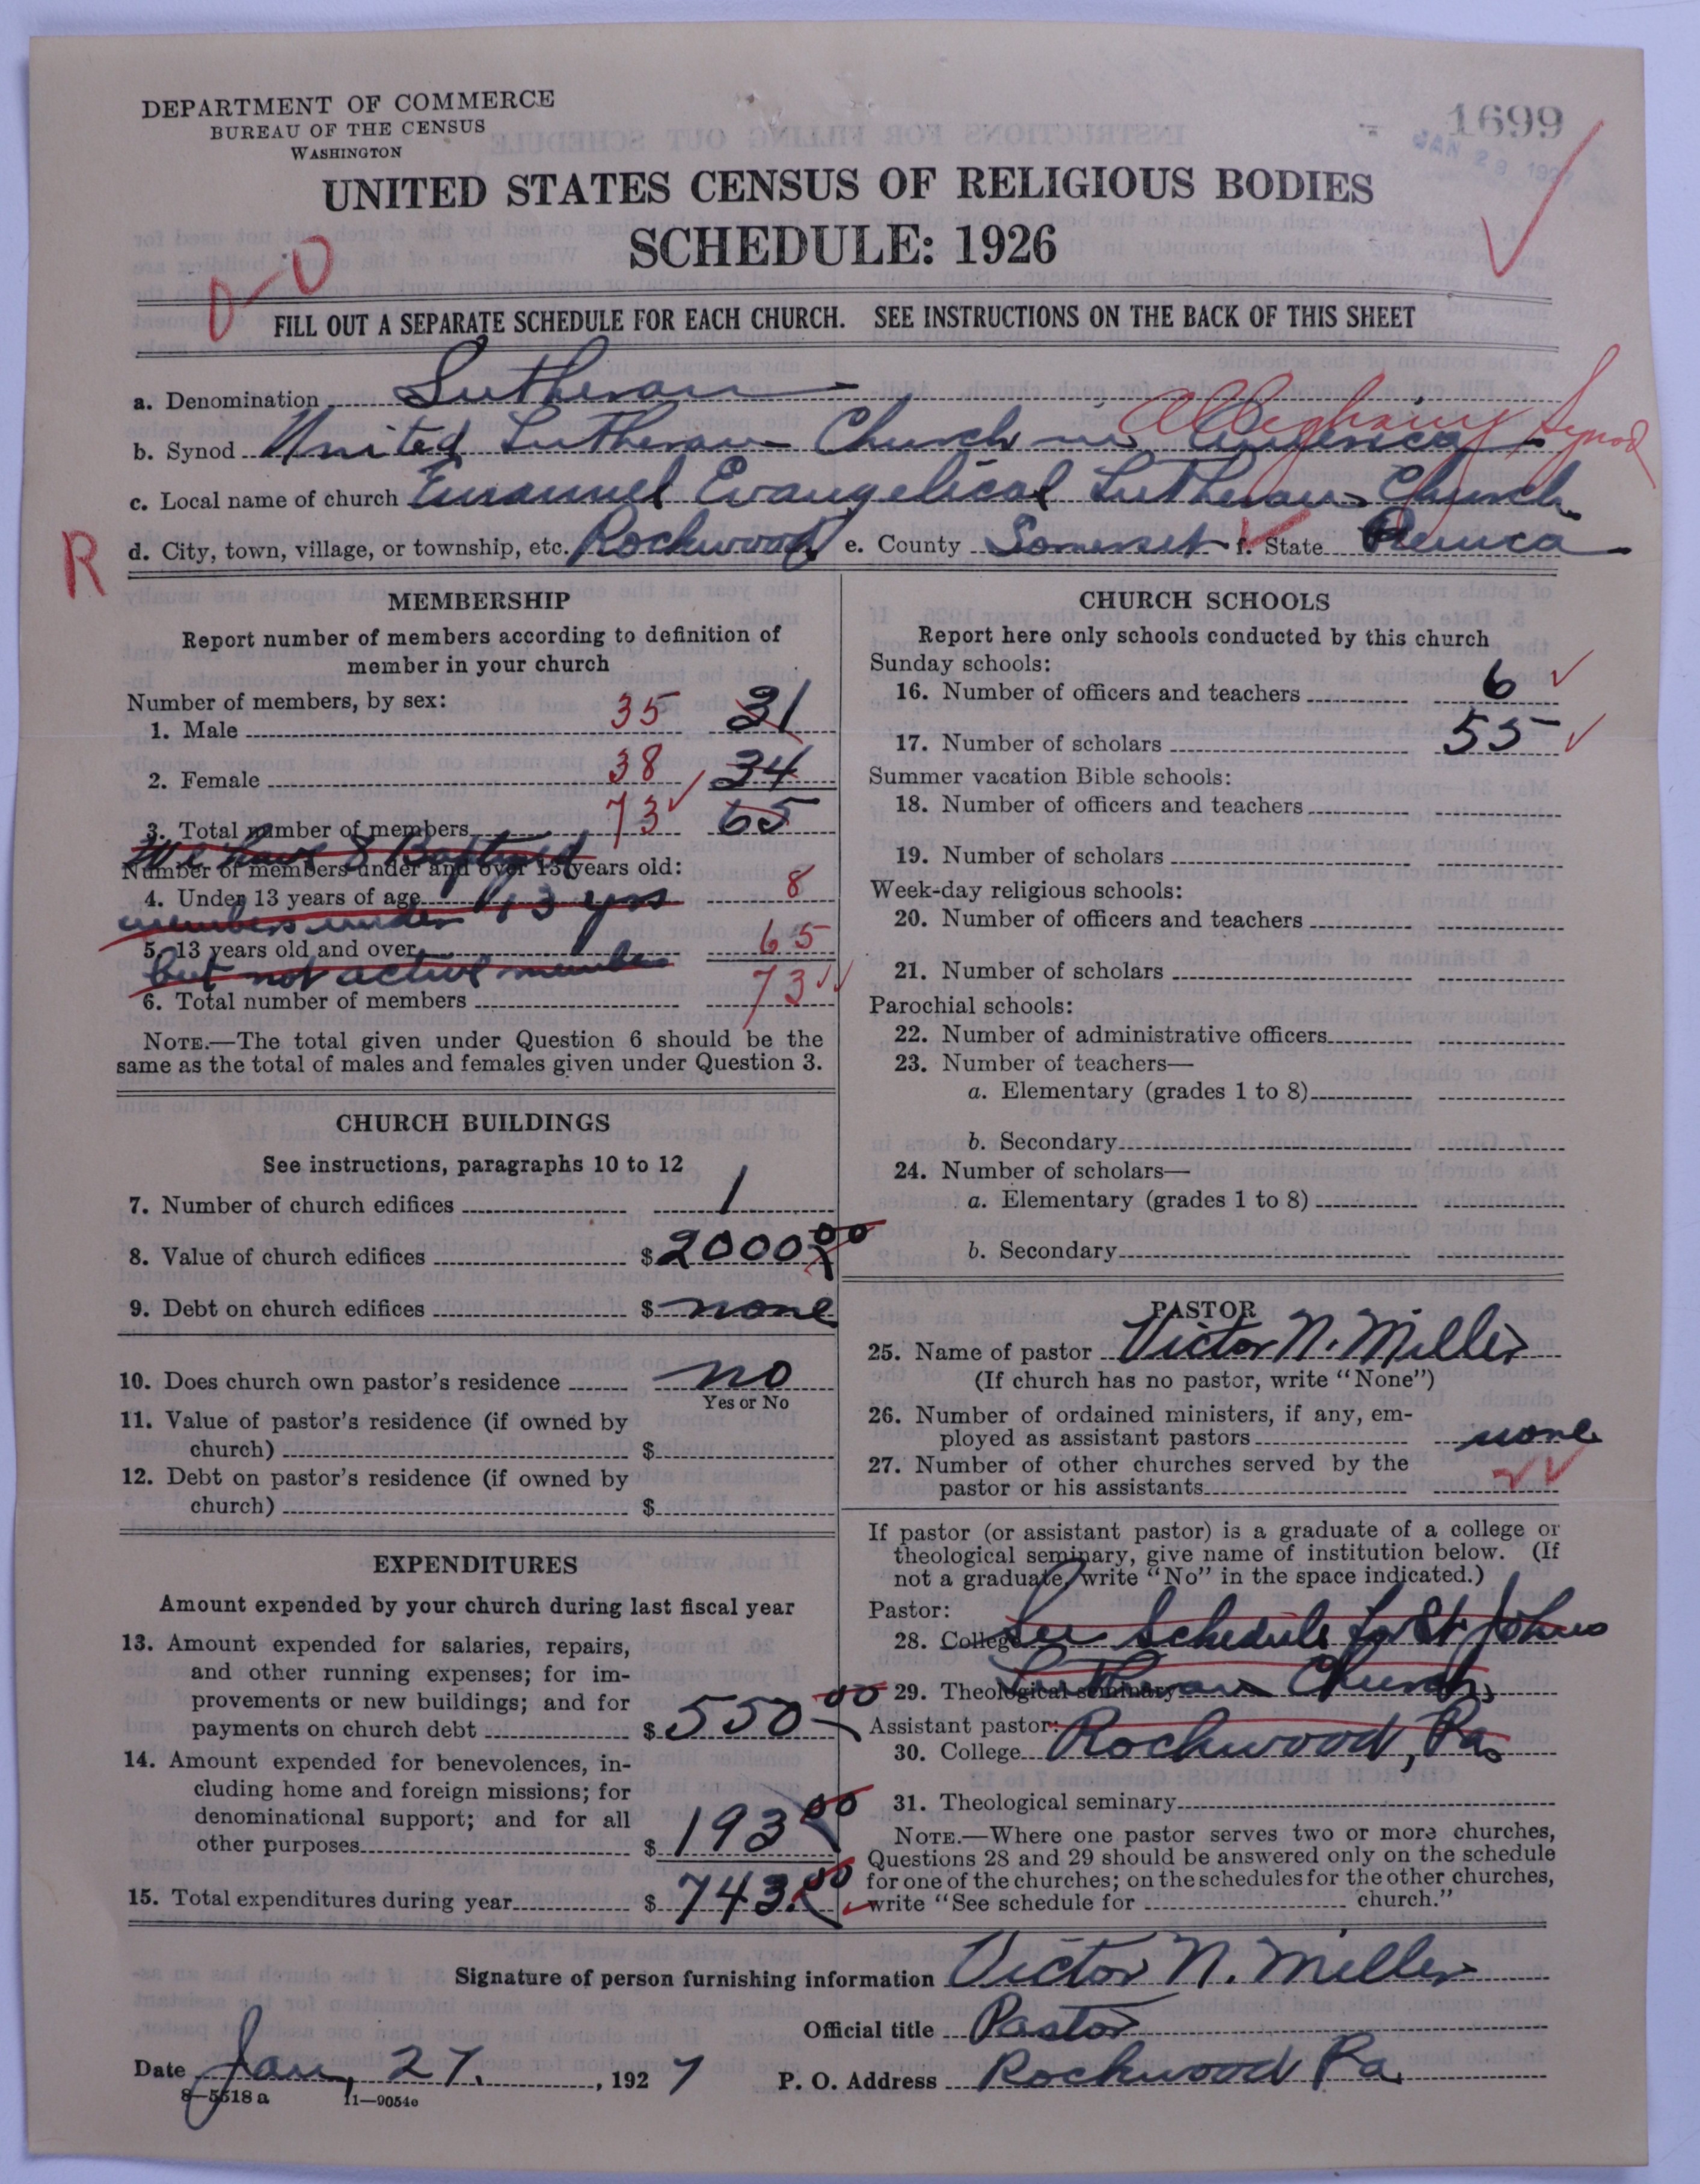 DEPARTMENT OF COMMERCE
BUREAU OF THE CENSUS
WASHINGTON
1699
JAN 28 1927
UNITED STATES CENSUS OF RELIGIOUS BODIES
SCHEDULE: 1926
FILL OUT A SEPARATE SCHEDULE FOR EACH CHURCH. SEE INSTRUCTIONS ON THE BACK OF THIS SHEET
a. Denomination Lutheran
Alleghany Synod
b. Synod United Lutheran Church in America
c. Local name of church Emanuel Evangelical Lutheran Church
R
d. City, town, village, or township, etc. Rockwood e. County Somerset f. State Penna
MEMBERSHIP
Report number of members according to definition of
member in your church
Number of members, by sex:
1. Male 35 31
2. Female 38 34
3. Total number of members 73 65
We have 8 Baptized
Number of members under and over 13 years old:
4. Under 13 years of age 8
members under 13 yrs
5. 13 years old and over 65
but not active member
6. Total number of members 73
NOTE.—The total given under Question 6 should be the
same as the total of males and females given under Question 3.
CHURCH BUILDINGS
See instructions, paragraphs 10 to 12
7. Number of church edifices 1
8. Value of church edifices $2000 00
9. Debt on church edifices $ none
10. Does church own pastor's residence no
Yes or No
11. Value of pastor's residence (if owned by
church) $
12. Debt on pastor's residence (if owned by
church) $
EXPENDITURES
Amount expended by your church during last fiscal year
13. Amount expended for salaries, repairs,
and other running expenses; for im-
provements or new buildings; and for
payments on church debt $ 550 00
14. Amount expended for benevolences, in-
cluding home and foreign missions; for
denominational support; and for all
other purposes $ 193 00
15. Total expenditures during year $ 743.00
CHURCH SCHOOLS
Report here only schools conducted by this church
Sunday schools:
16. Number of officers and teachers 6
17. Number of scholars 55
Summer vacation Bible schools:
18. Number of officers and teachers
19. Number of scholars
Week-day religious schools:
20. Number of officers and teachers
21. Number of scholars
Parochial schools:
22. Number of administrative officers
23. Number of teachers—
a. Elementary (grades 1 to 8)
b. Secondary
24. Number of scholars—
a. Elementary (grades 1 to 8)
b. Secondary
PASTOR
25. Name of pastor Victor N. Miller
(If church has no pastor, write "None")
26. Number of ordained ministers, if any, em-
ployed as assistant pastors none
27. Number of other churches served by the
pastor or his assistants
If pastor (or assistant pastor) is a graduate of a college or
theological seminary, give name of institution below. (If
not a graduate, write "No" in the space indicated.)
Pastor:
28. College See Schedule for St Johns
29. Theological seminary Lutheran Church,
Assistant pastor:
30. College Rockwood, Pa
31. Theological seminary
NOTE.—Where one pastor serves two or more churches,
Questions 28 and 29 should be answered only on the schedule
for one of the churches; on the schedules for the other churches,
write "See schedule for church."
Signature of person furnishing information Victor N. Miller
Official title Pastor
Date Jan, 27. , 1927 P. O. Address Rockwood Pa.
8—5518 a 11—9054c